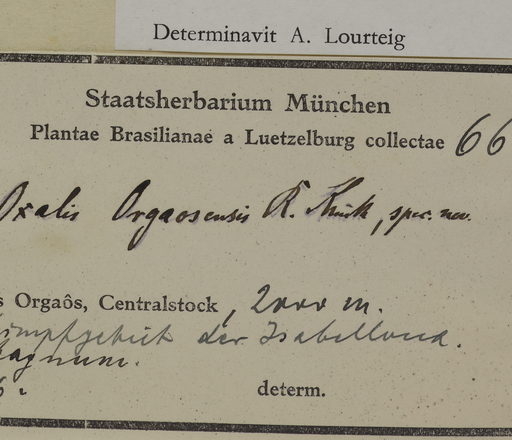 Determinavit A. Lourteig
Staatsherbarium München
Plantae Brasilianae a Luetzelburg collectae 66
Oxalis Orgaosensis R. Knuth, spec. nov.
s Orgaôs, Centralstock, 2000 m.
der
determ.